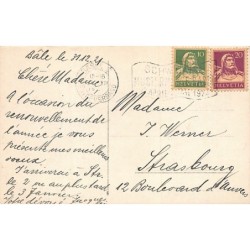 Bâle d. 31.12.21
Chère Madame
A l'occasion du
renouvellement de
l'année je vous
présente mes meilleurs
voeux
J'arriverai à Str.
2 ou au plus tard
le 3 Janvier
10
HELVETIA
20
HELVETIA
Madame
J. Werner
Strasbourg
12 Boulevard d'Anvers